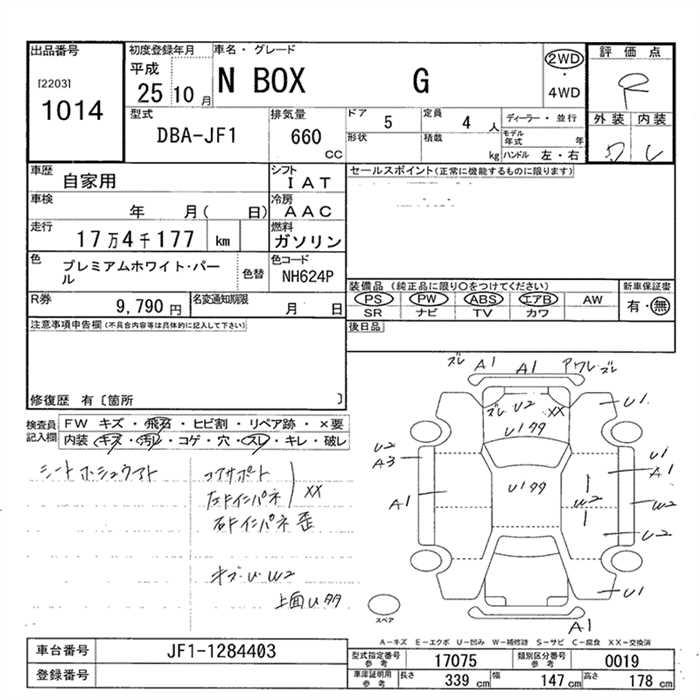 出品番号
[2203]
1014
初度登録年月
平成
25 10 月
車名・グレード
N BOX G
2WD
・
4WD
評価点
R
外装 内装
型式
DBA-JF1
排気量
660
cc
ドア
5
定員
4 人
形状
積載
kg
ディーラー・並行
モデル年式 年
ハンドル 左・右
車歴
自家用
シフト
IAT
車検
年 月( 日)
冷房
AAC
走行
17万4千177 km
燃料
ガソリン
色
プレミアムホワイト・パール
色替
色コード
NH624P
R券
9,790 円
名変通知期限
月 日
セールスポイント(正常に機能するものに限ります)
装備品 (純正品に限り○をつけてください)
PS PW ABS エアB AW
SR ナビ TV カワ
新車保証書
有・無
後日品
注意事項申告欄(不具合内容等は具体的に記入して下さい)
修復歴 有〔箇所 〕
検査員記入欄
FW キズ・飛石・ヒビ割・リペア跡・×要
内装・キズ・汚レ・コゲ・穴・スレ・キレ・破レ
コアサポート
左ドインパネ XX
右ドインパネ 歪
キズ・U・W2
上面Uタタ
ズレ A1 A1
ズレ U2 XX
U1タタ
U1
U2
A3
A1
U1タタ
U1
A1
W2
W2
U2
U1
A1
スペア
A-キズ E-エクボ U-凹み W-補修跡 S-サビ C-腐食 XX-交換済
車台番号
JF1-1284403
登録番号
型式指定番号
参考
17075
類別区分番号
参考
0019
車庫証明用
参考
長さ 339 cm
幅 147 cm
高さ 178 cm